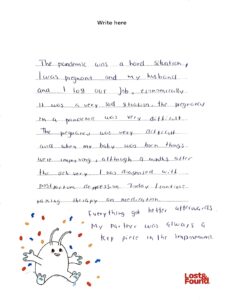 Write here
The pandemic was a hard situation,
I was pregnant and my husband
and I lost our Job, economically
It was a very sad situation, the pregnancy
in a pandemic was very difficult.
The pregnancy was very difficult
and when my baby was born things
were improving, although 4 months after
the I was diagnosed with
postpartum depression. Today I continue
making therapy an medication
Everything got better afterwards
My partner was always a
Key piece in the improvement.
Lost&
Found